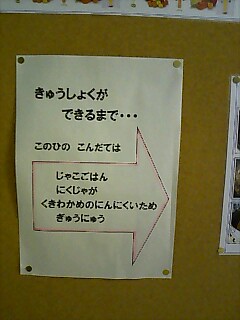 きゅうしょくが
できるまで・・・
このひの こんだては
じゃこごはん
にくじゃが
くきわかめのにんにくいため
ぎゅうにゅう